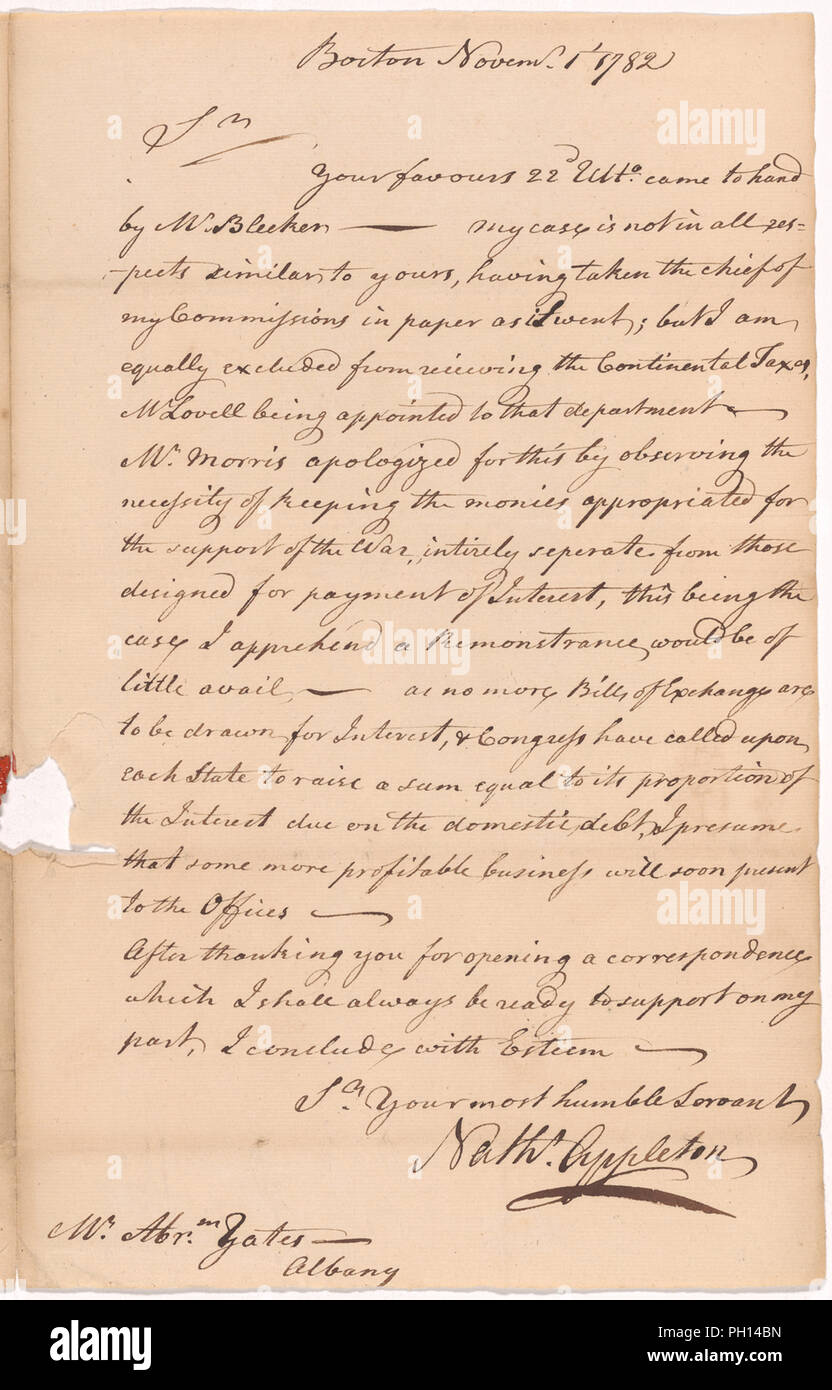 Boston Novem.r 1st 1782
Sr
Your favours 22d Ulto. came to hand
by Mr. Bleeker — my case is not in all res-
-pects similar to yours, having taken the chief of
my Commissions in paper as it went; but I am
equally excluded from receiving the Continental Taxes,
Mr Lovell being appointed to that department —
Mr. Morris apologized for this by observing the
necessity of keeping the monies appropriated for
the support of the War, intirely seperate from those
designed for payment of Interest, this being the
case I apprehend a Remonstrance would be of
little avail — as no more Bills of Exchange are
to be drawn for Interest, & Congress have called upon
each State to raise a sum equal to its proportion of
the Interest due on the domestic debt, I presume
that some more profitable business will soon present
to the Offices —
After thanking you for opening a correspondence
which I shall always be ready to support on my
part, I conclude with Esteem —
Sr. Your most humble Servant
Nathl. Appleton
Mr. Abr.m Yates —
Albany
alamy
alamy
alamy
alamy
alamy
Image ID: PH14BN
www.alamy.com